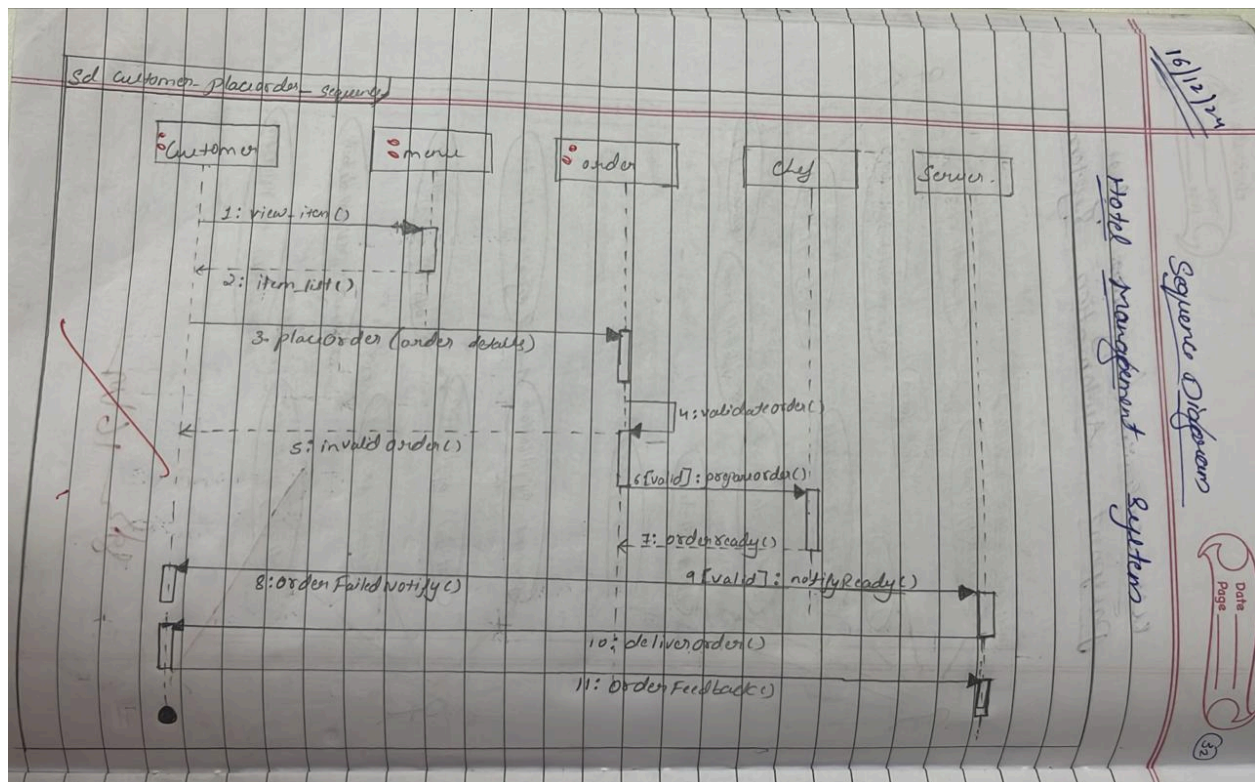 16/12/24
Sequence Diagram
Hotel Management System
Date
Page
32
Sd customer_placeorder_sequence
:Customer
:menu
:order
Chef
Server.
1: view_item()
2: item_list()
3. placeOrder (order details)
4: validateorder()
5: invalid order()
6[valid]: preparorder()
7: orderready()
8: orderFailedNotify()
9[valid]: notifyReady()
10: deliverorder()
11: orderFeedback()